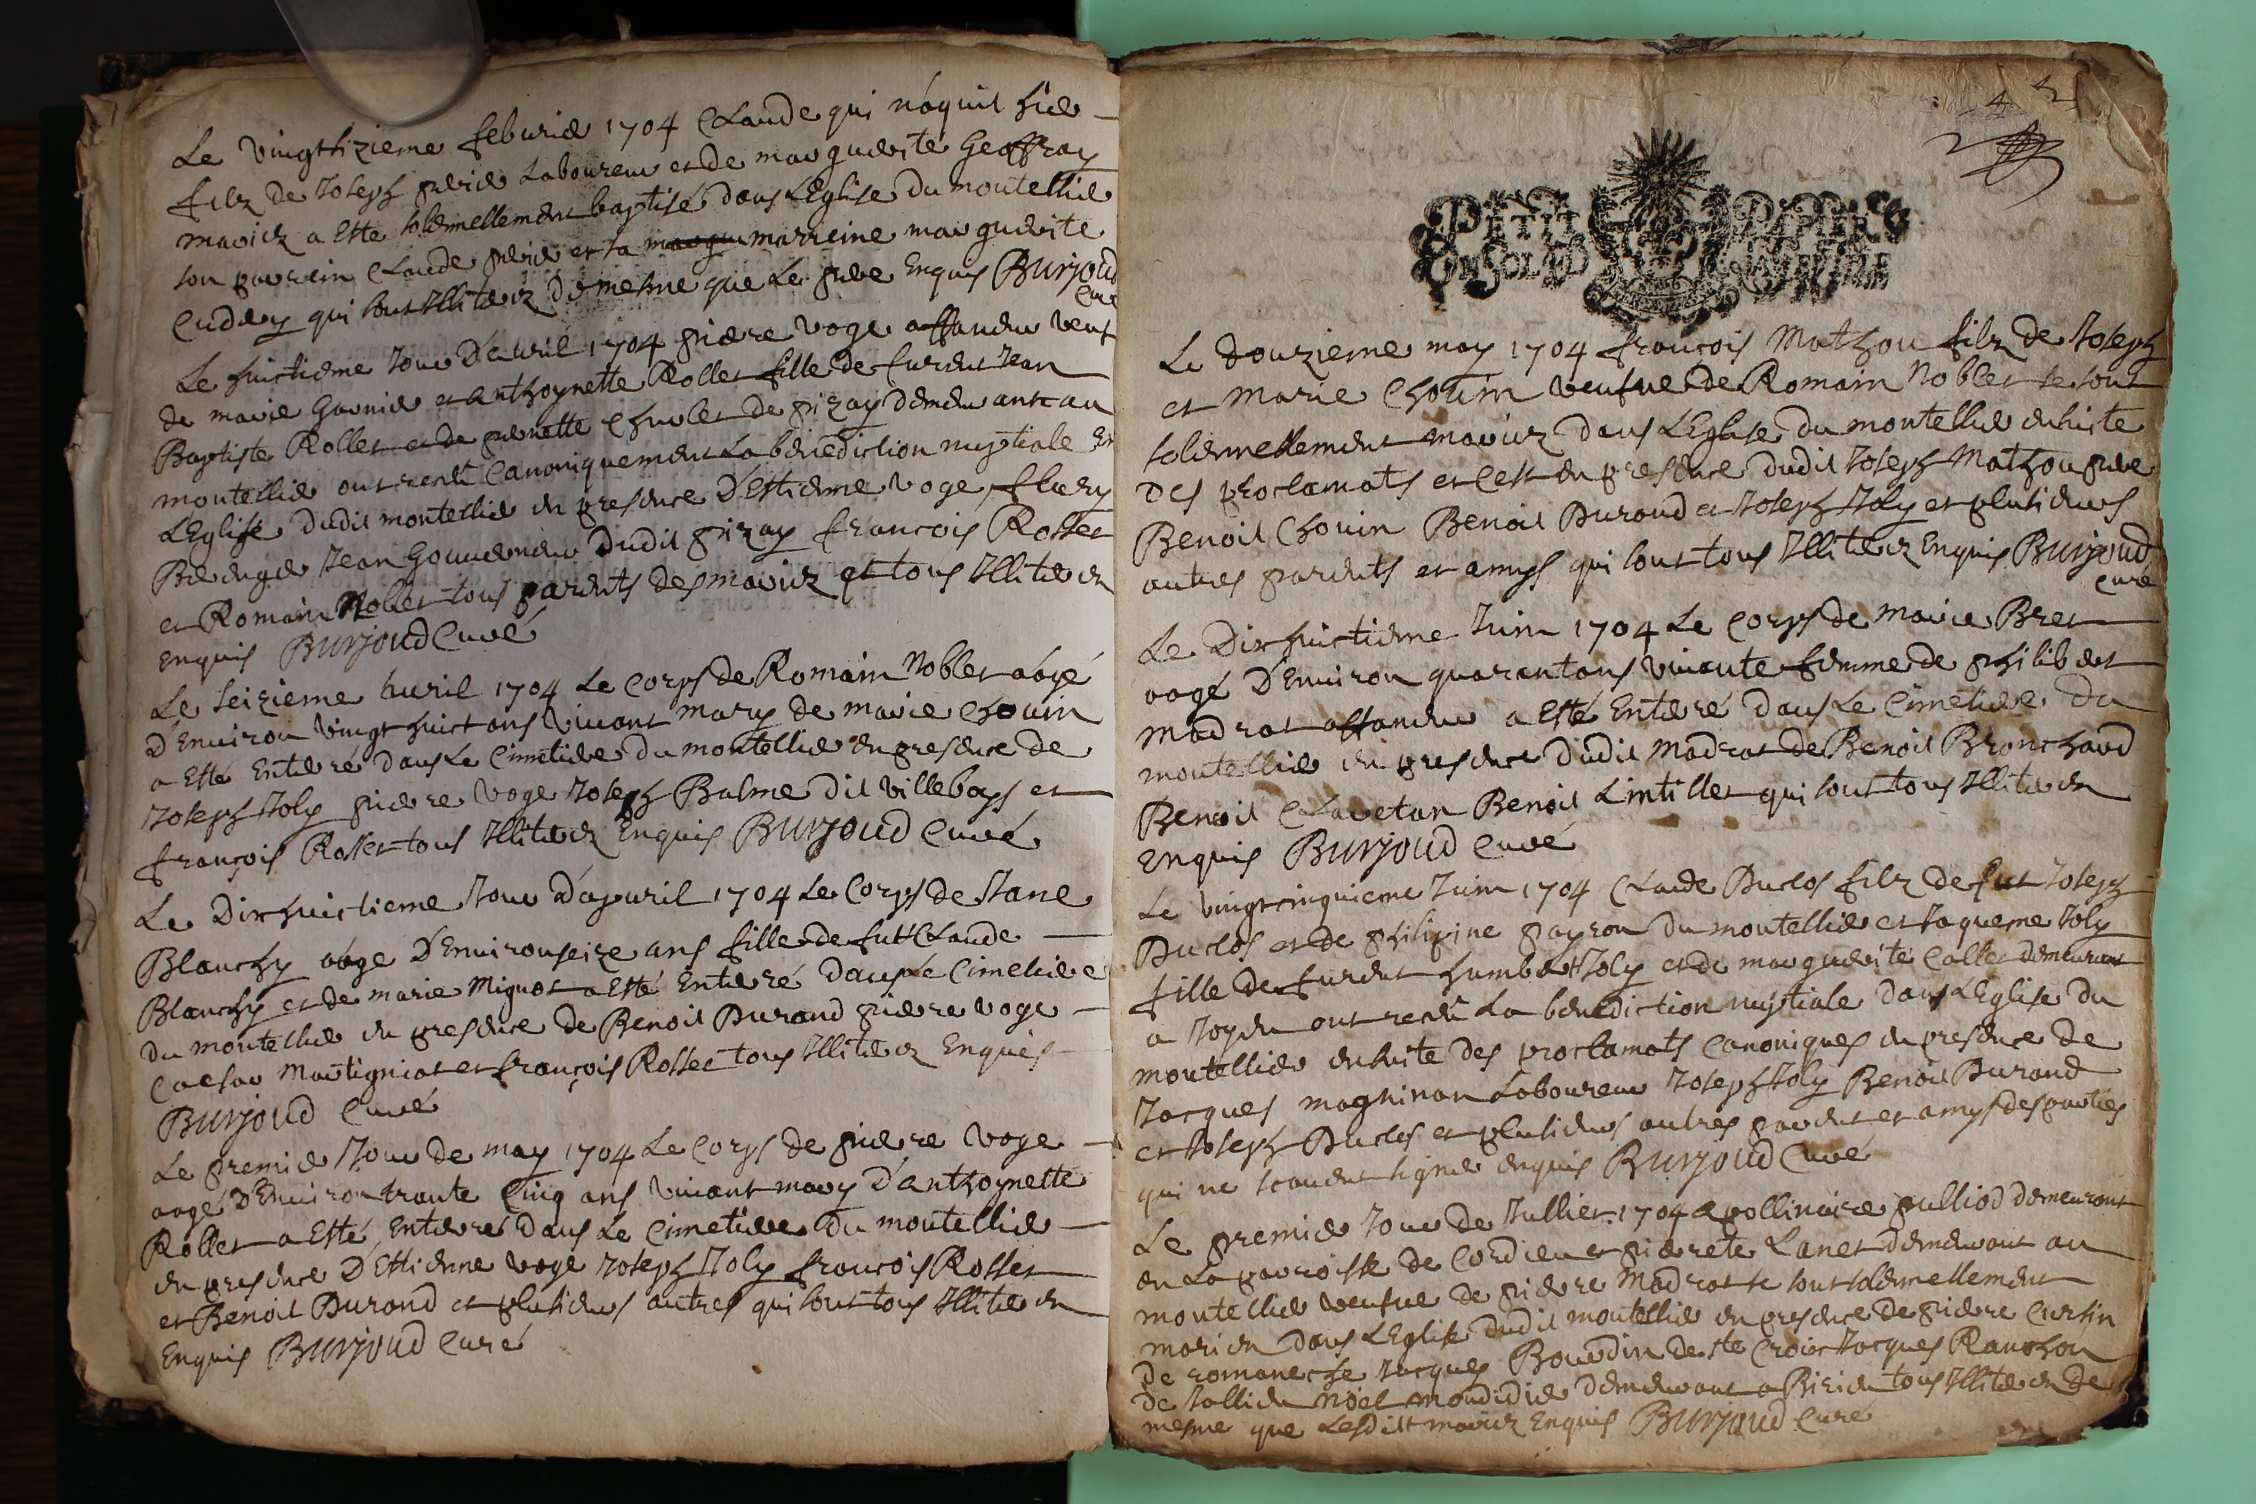 Le vingtsizieme feburier 1704 Claude qui náquit hier
filz de Joseph perier Laboureur et de marguerite Geoffray
mariez a Esté solemnellement baptisé dans L'Eglise du montellier
son parrein Claude perier et sa marreine marguerite
Cudery qui sont Illiterez de mesme que Le pere Enquis Burjoud
Curé
Le huictieme Jour D'auril 1704 pierre voge affaneur veuf
de marie Garnier et Anthoynette Rollet fille de furent Jean
Baptiste Rollet et de pernette Chuolet de pizay demeurants au
montellier ont receu Canoniquement La benediction nuptiale En
L'Eglise dudit montellier en presence D'Ettienne voge, fleury
Berenger Jean Gouuerneur dudit pizay francois Rosset
et Romain Noblet tous parents des mariez et tous Illiteren
Enquis Burjoud Curé
Le Seizieme Auril 1704 Le Corps de Romain Noblet aagé
D'Enuiron vingt huict ans viuant mary de marie Chouin
a Esté Enterré dans Le Cimetiere du montellier en presence de
Joseph Joly pierre Voge Joseph Balme dit Villeboys et
françois Rosset tous Illiterez Enquis Burjoud Curé
Le Dixhuictieme Jour D'apuril 1704 Le Corps de Jane
Blanchy aagé D'Enuiron seize ans fille de fut Claude
Blanchy et de marie Mignot a Esté Enterré dans Le Cimetiere
du montellier en presence de Benoit Durand pierre voge
Caesar Martigniat et françois Rosset tous Illiterez Enquis
Burjoud Curé
Le premier Jour de may 1704 Le Corps de pierre Voge
aagé D'Enuiron trante Cinq ans viuant mary D'anthoynette
Rollet a Esté Enterré dans Le Cimetiere du montellier
en presence D'Ettienne voge Joseph Joly francois Rosset
et Benoit Durand et plusieurs autres qui sont tous Illiteren
Enquis Burjoud Curé
4
PETIT PAPIER
UN SOL LD
Le douzieme may 1704 françois Mathon filz de Joseph
et Marie Chouin veufue de Romain Noblet se sont
solemnellement mariez dans L'Eglise du montellier ensuite
des proclamats et Cest en presence dudit Joseph Mathon pere
Benoit Chouin Benoit Durand et Joseph Joly et plusieurs
autres parents et amys qui sont tous Illiterez Enquis Burjoud
curé
Le Dixhuictieme Juin 1704 Le Corps de Marie Bret
aagé D'Enuiron quarant ans viuante femme de philibert
Madrat affaneur a Esté Enterré dans Le Cimetiere du
montellier en presence dudit Madrat de Benoit Bronchard
Benoit Clavetan Benoit Lintillet qui sont tous Illiteren
Enquis Burjoud Curé
Le vingtcinquieme Juin 1704 Claude Duclos filz de fut Joseph
Duclos et de philipine payron du montellier et Jaqueme Joly
fille de furent humbert Joly et de marguerite Collet demeurant
a Joyeu ont receu La benediction nuptiale dans L'Eglise du
montellier ensuite des proclamats Canoniques en presence de
Jacques magninan Laboureur Joseph Joly Benoit Durand
et Joseph Duclos et plusieurs autres parent et amys des parties
qui ne scauent signer enquis Burjoud Curé
Le premier Jour de Jullier 1704 apollinaire pulliod demeurant
en La parroisse de Cordieu et pierrete Lanet demeurant au
montellier veufue de pierre Madrat se sont solemnellement
marien dans L'Eglise dudit montellier en presence de pierre Cursin
de romaneche Jacques Bourdin de ste Croix Jacques Ranchon
de Jallieu Noel mondidier demeurant a Birieu tous Illiteren de
mesme que Lesdits mariez Enquis Burjoud Curé